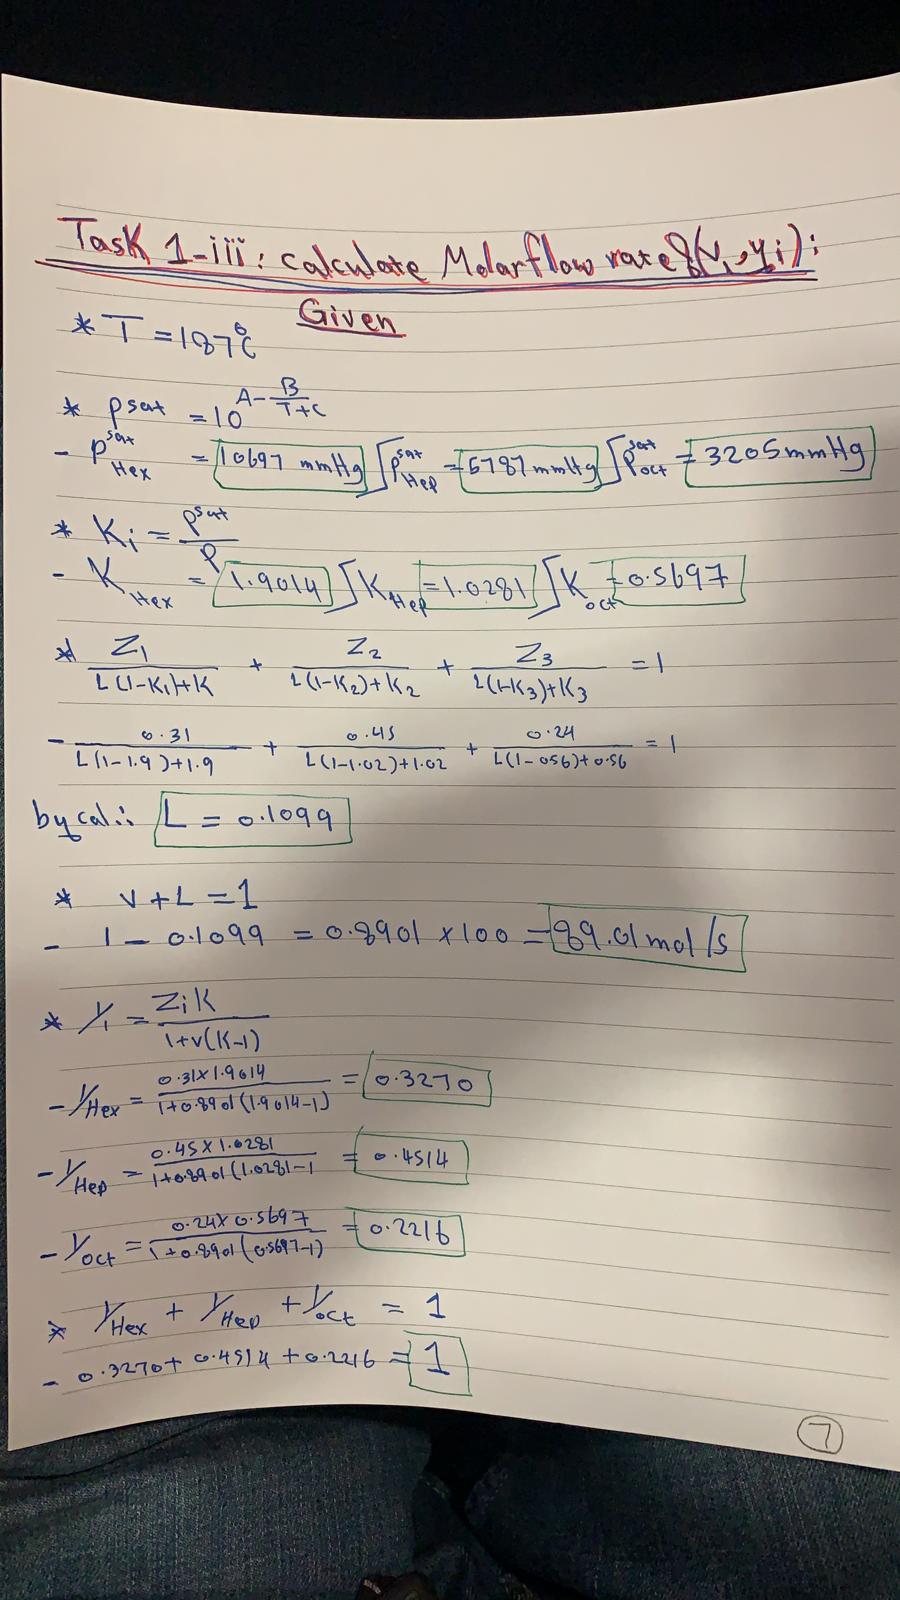 Task 1-iii: calculate Molar flow rate &(V, yi):
Given
* T = 187°C
* Psat = 10^(A - B/(T+C))
- P^sat Hex = 10697 mmHg ∫ P^sat Hep = 5787 mmHg ∫ P^sat oct = 3205 mmHg
* Ki = P^sat / P
- K Hex = 1.9014 ∫ K Hep = 1.0281 ∫ K oct = 0.5697
* Z1 / (L(1-K1)+K) + Z2 / (L(1-K2)+K2) + Z3 / (L(1-K3)+K3) = 1
- 0.31 / (L(1-1.9)+1.9) + 0.45 / (L(1-1.02)+1.02) + 0.24 / (L(1-056)+0.56) = 1
by cal.: L = 0.1099
* V + L = 1
- 1 - 0.1099 = 0.8901 x 100 = 89.01 mol/s
* Yi = ZiK / (1+v(K-1))
- Y Hex = 0.31x1.9014 / (1+0.8901(1.9014-1)) = 0.3270
- Y Hep = 0.45 x 1.0281 / (1+0.8901(1.0281-1 = 0.4514
- Y oct = 0.24x 0.5697 / (1+0.8901(0.5697-1) = 0.2216
* Y Hex + Y Hep + Y oct = 1
- 0.3270 + 0.4514 + 0.2216 = 1
7